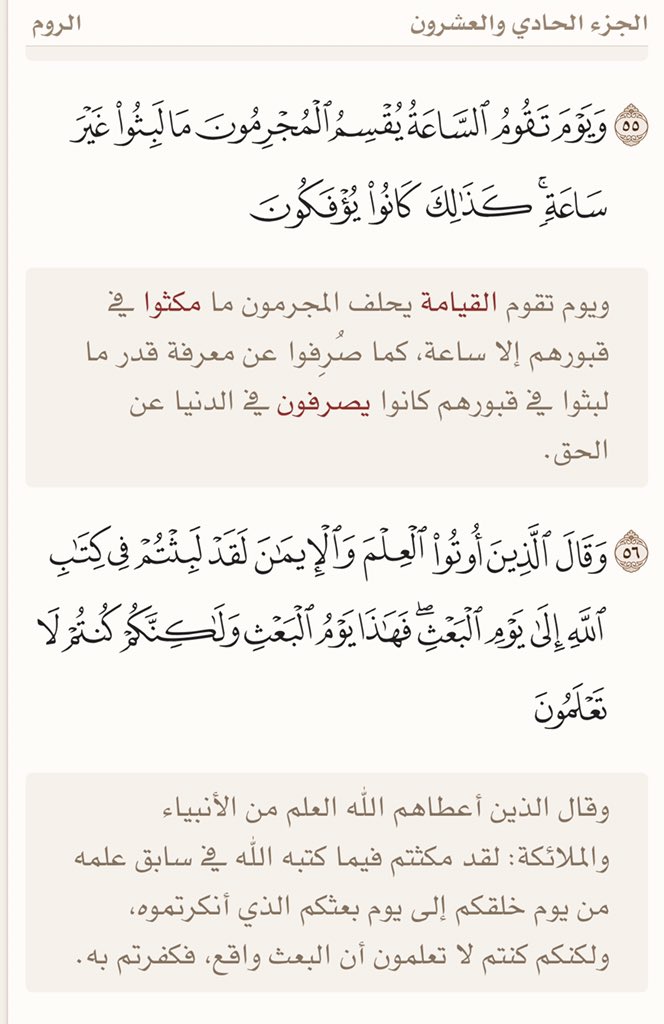 الجزء الحادي والعشرون
الروم
٥٥ وَيَوْمَ تَقُومُ ٱلسَّاعَةُ يُقْسِمُ ٱلْمُجْرِمُونَ مَا لَبِثُوا۟ غَيْرَ
سَاعَةٍۢ ۚ كَذَٰلِكَ كَانُوا۟ يُؤْفَكُونَ
ويوم تقوم القيامة يحلف المجرمون ما مكثوا في
قبورهم إلا ساعة، كما صُرِفوا عن معرفة قدر ما
لبثوا في قبورهم كانوا يصرفون في الدنيا عن
الحق.
٥٦ وَقَالَ ٱلَّذِينَ أُوتُوا۟ ٱلْعِلْمَ وَٱلْإِيمَـٰنَ لَقَدْ لَبِثْتُمْ فِى كِتَـٰبِ
ٱللَّهِ إِلَىٰ يَوْمِ ٱلْبَعْثِ ۖ فَهَـٰذَا يَوْمُ ٱلْبَعْثِ وَلَـٰكِنَّكُمْ كُنتُمْ لَا
تَعْلَمُونَ
وقال الذين أعطاهم الله العلم من الأنبياء
والملائكة: لقد مكثتم فيما كتبه الله في سابق علمه
من يوم خلقكم إلى يوم بعثكم الذي أنكرتموه،
ولكنكم كنتم لا تعلمون أن البعث واقع، فكفرتم به.